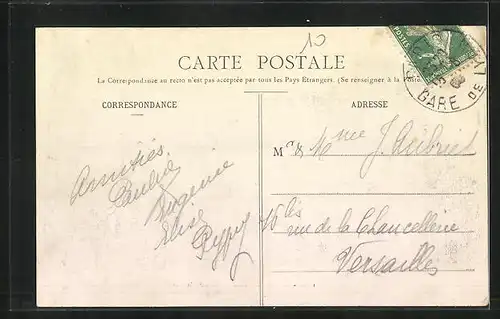 10
CARTE POSTALE
La Correspondance au recto n'est pas acceptée par tous les Pays Etrangers. (Se renseigner à la Poste
CORRESPONDANCE
ADRESSE
GARE DE
M & Mme J. Aubriet
16 bis
rue de la Chancellerie
Versailles
Amitiés
Eugenie
Elise